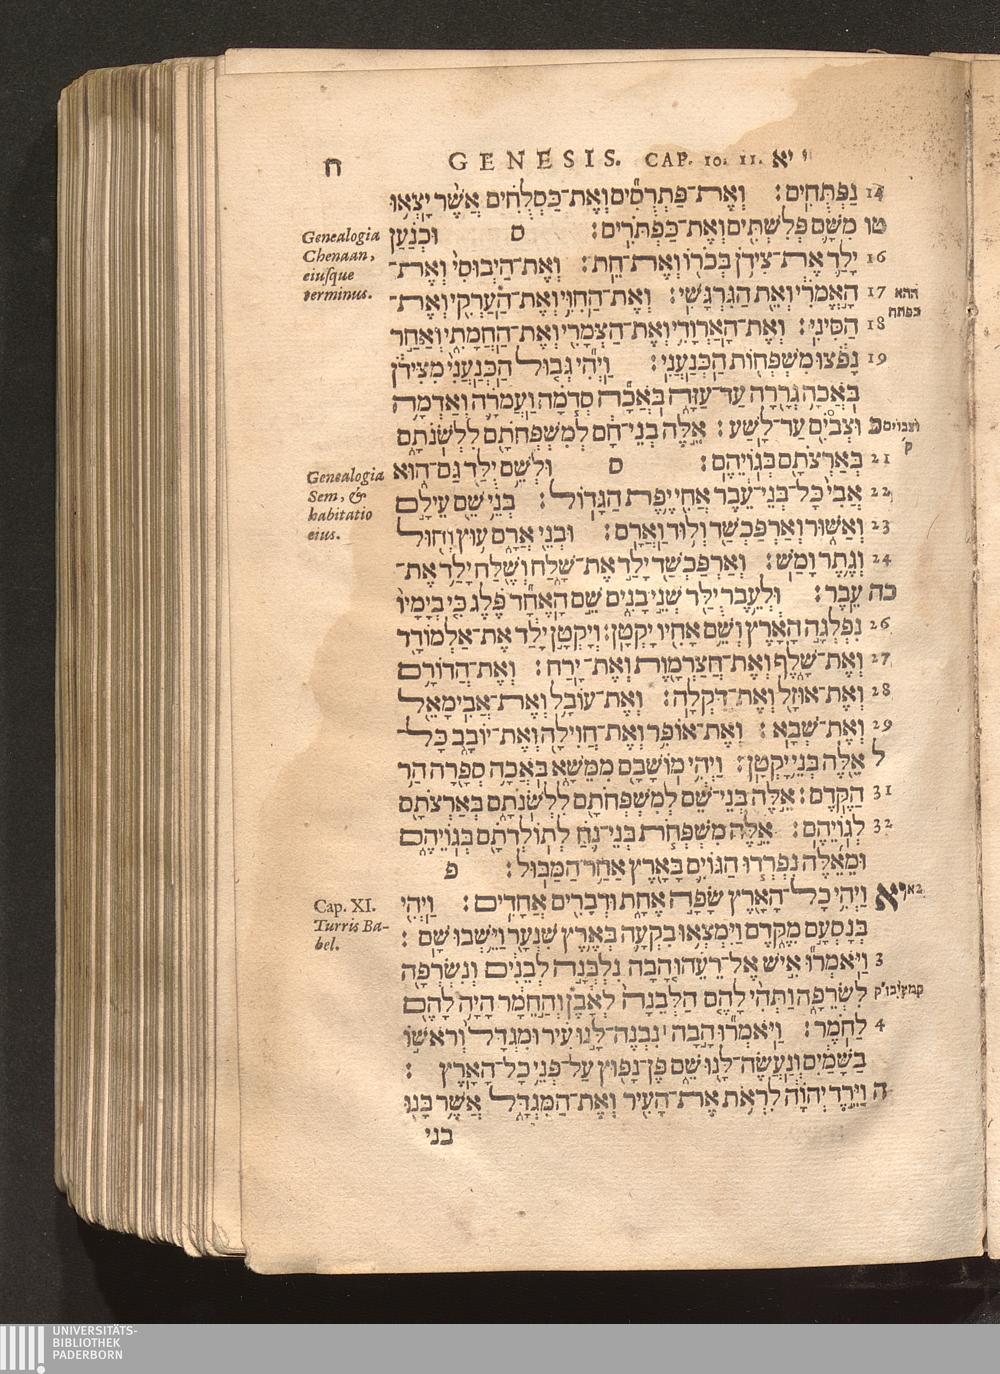 ח GENESIS. CAP. 10. 11. י יא
14 נַפְתֻּחִים׃ וְאֶת־פַּתְרֻסִים וְאֶת־כַּסְלֻחִים אֲשֶׁר יָצְאוּ
טו מִשָּׁם פְּלִשְׁתִּים וְאֶת־כַּפְתֹּרִים׃ ס וּכְנַעַן
Genealogia
Chenaan,
eiusque
terminus.
16 יָלַד אֶת־צִידֹן בְּכֹרוֹ וְאֶת־חֵת׃ וְאֶת־הַיְבוּסִי וְאֶת־
17 הָאֱמֹרִי וְאֵת הַגִּרְגָּשִׁי׃ וְאֶת־הַחִוִּי וְאֶת־הַעַרְקִי וְאֶת־
ההא
בפתח
18 הַסִּינִי׃ וְאֶת־הָאַרְוָדִי וְאֶת־הַצְּמָרִי וְאֶת־הַחֲמָתִי וְאַחַר
19 נָפֹצוּ מִשְׁפְּחוֹת הַכְּנַעֲנִי׃ וַיְהִי גְּבוּל הַכְּנַעֲנִי מִצִּידֹן
בֹּאֲכָה גְרָרָה עַד־עַזָּה בֹּאֲכָה סְדֹמָה וַעֲמֹרָה וְאַדְמָה
כ וּצְבֹיִם עַד־לָשַׁע׃ אֵלֶּה בְנֵי־חָם לְמִשְׁפְּחֹתָם לִלְשֹׁנֹתָם
וצבוים
ק׳
21 בְּאַרְצֹתָם בְּגוֹיֵהֶם׃ ס וּלְשֵׁם יֻלַּד גַּם־הוּא
Genealogia
Sem, &
habitatio
eius.
22 אֲבִי כָּל־בְּנֵי־עֵבֶר אֲחִי יֶפֶת הַגָּדוֹל׃ בְּנֵי שֵׁם עֵילָם
23 וְאַשּׁוּר וְאַרְפַּכְשַׁד וְלוּד וַאֲרָם׃ וּבְנֵי אֲרָם עוּץ וְחוּל
24 וְגֶתֶר וָמַשׁ׃ וְאַרְפַּכְשַׁד יָלַד אֶת־שָׁלַח וְשֶׁלַח יָלַד אֶת־
כה עֵבֶר׃ וּלְעֵבֶר יֻלַּד שְׁנֵי בָנִים שֵׁם הָאֶחָד פֶּלֶג כִּי בְיָמָיו
26 נִפְלְגָה הָאָרֶץ וְשֵׁם אָחִיו יָקְטָן׃ וְיָקְטָן יָלַד אֶת־אַלְמוֹדָד
27 וְאֶת־שָׁלֶף וְאֶת־חֲצַרְמָוֶת וְאֶת־יָרַח׃ וְאֶת־הֲדוֹרָם
28 וְאֶת־אוּזָל וְאֶת־דִּקְלָה׃ וְאֶת־עוֹבָל וְאֶת־אֲבִימָאֵל
29 וְאֶת־שְׁבָא׃ וְאֶת־אוֹפִר וְאֶת־חֲוִילָה וְאֶת־יוֹבָב כָּל־
ל אֵלֶּה בְּנֵי יָקְטָן׃ וַיְהִי מוֹשָׁבָם מִמֵּשָׁא בֹּאֲכָה סְפָרָה הַר
31 הַקֶּדֶם׃ אֵלֶּה בְנֵי־שֵׁם לְמִשְׁפְּחֹתָם לִלְשֹׁנֹתָם בְּאַרְצֹתָם
32 לְגוֹיֵהֶם׃ אֵלֶּה מִשְׁפְּחֹת בְּנֵי־נֹחַ לְתוֹלְדֹתָם בְּגוֹיֵהֶם
וּמֵאֵלֶּה נִפְרְדוּ הַגּוֹיִם בָּאָרֶץ אַחַר הַמַּבּוּל׃ פ
יא וַיְהִי כָל־הָאָרֶץ שָׂפָה אֶחָת וּדְבָרִים אֲחָדִים׃ וַיְהִי
Cap. XI.
Turris Ba-
bel.
בְּנָסְעָם מִקֶּדֶם וַיִּמְצְאוּ בִקְעָה בְּאֶרֶץ שִׁנְעָר וַיֵּשְׁבוּ שָׁם׃
3 וַיֹּאמְרוּ אִישׁ אֶל־רֵעֵהוּ הָבָה נִלְבְּנָה לְבֵנִים וְנִשְׂרְפָה
לִשְׂרֵפָה וַתְּהִי לָהֶם הַלְּבֵנָה לְאָבֶן וְהַחֵמָר הָיָה לָהֶם
4 לַחֹמֶר׃ וַיֹּאמְרוּ הָבָה נִבְנֶה־לָּנוּ עִיר וּמִגְדָּל וְרֹאשׁוֹ
בַשָּׁמַיִם וְנַעֲשֶׂה־לָּנוּ שֵׁם פֶּן־נָפוּץ עַל־פְּנֵי כָל־הָאָרֶץ׃
ה וַיֵּרֶד יְהוָֹה לִרְאֹת אֶת־הָעִיר וְאֶת־הַמִּגְדָּל אֲשֶׁר בָּנוּ
בני
UNIVERSITÄTS-
BIBLIOTHEK
PADERBORN